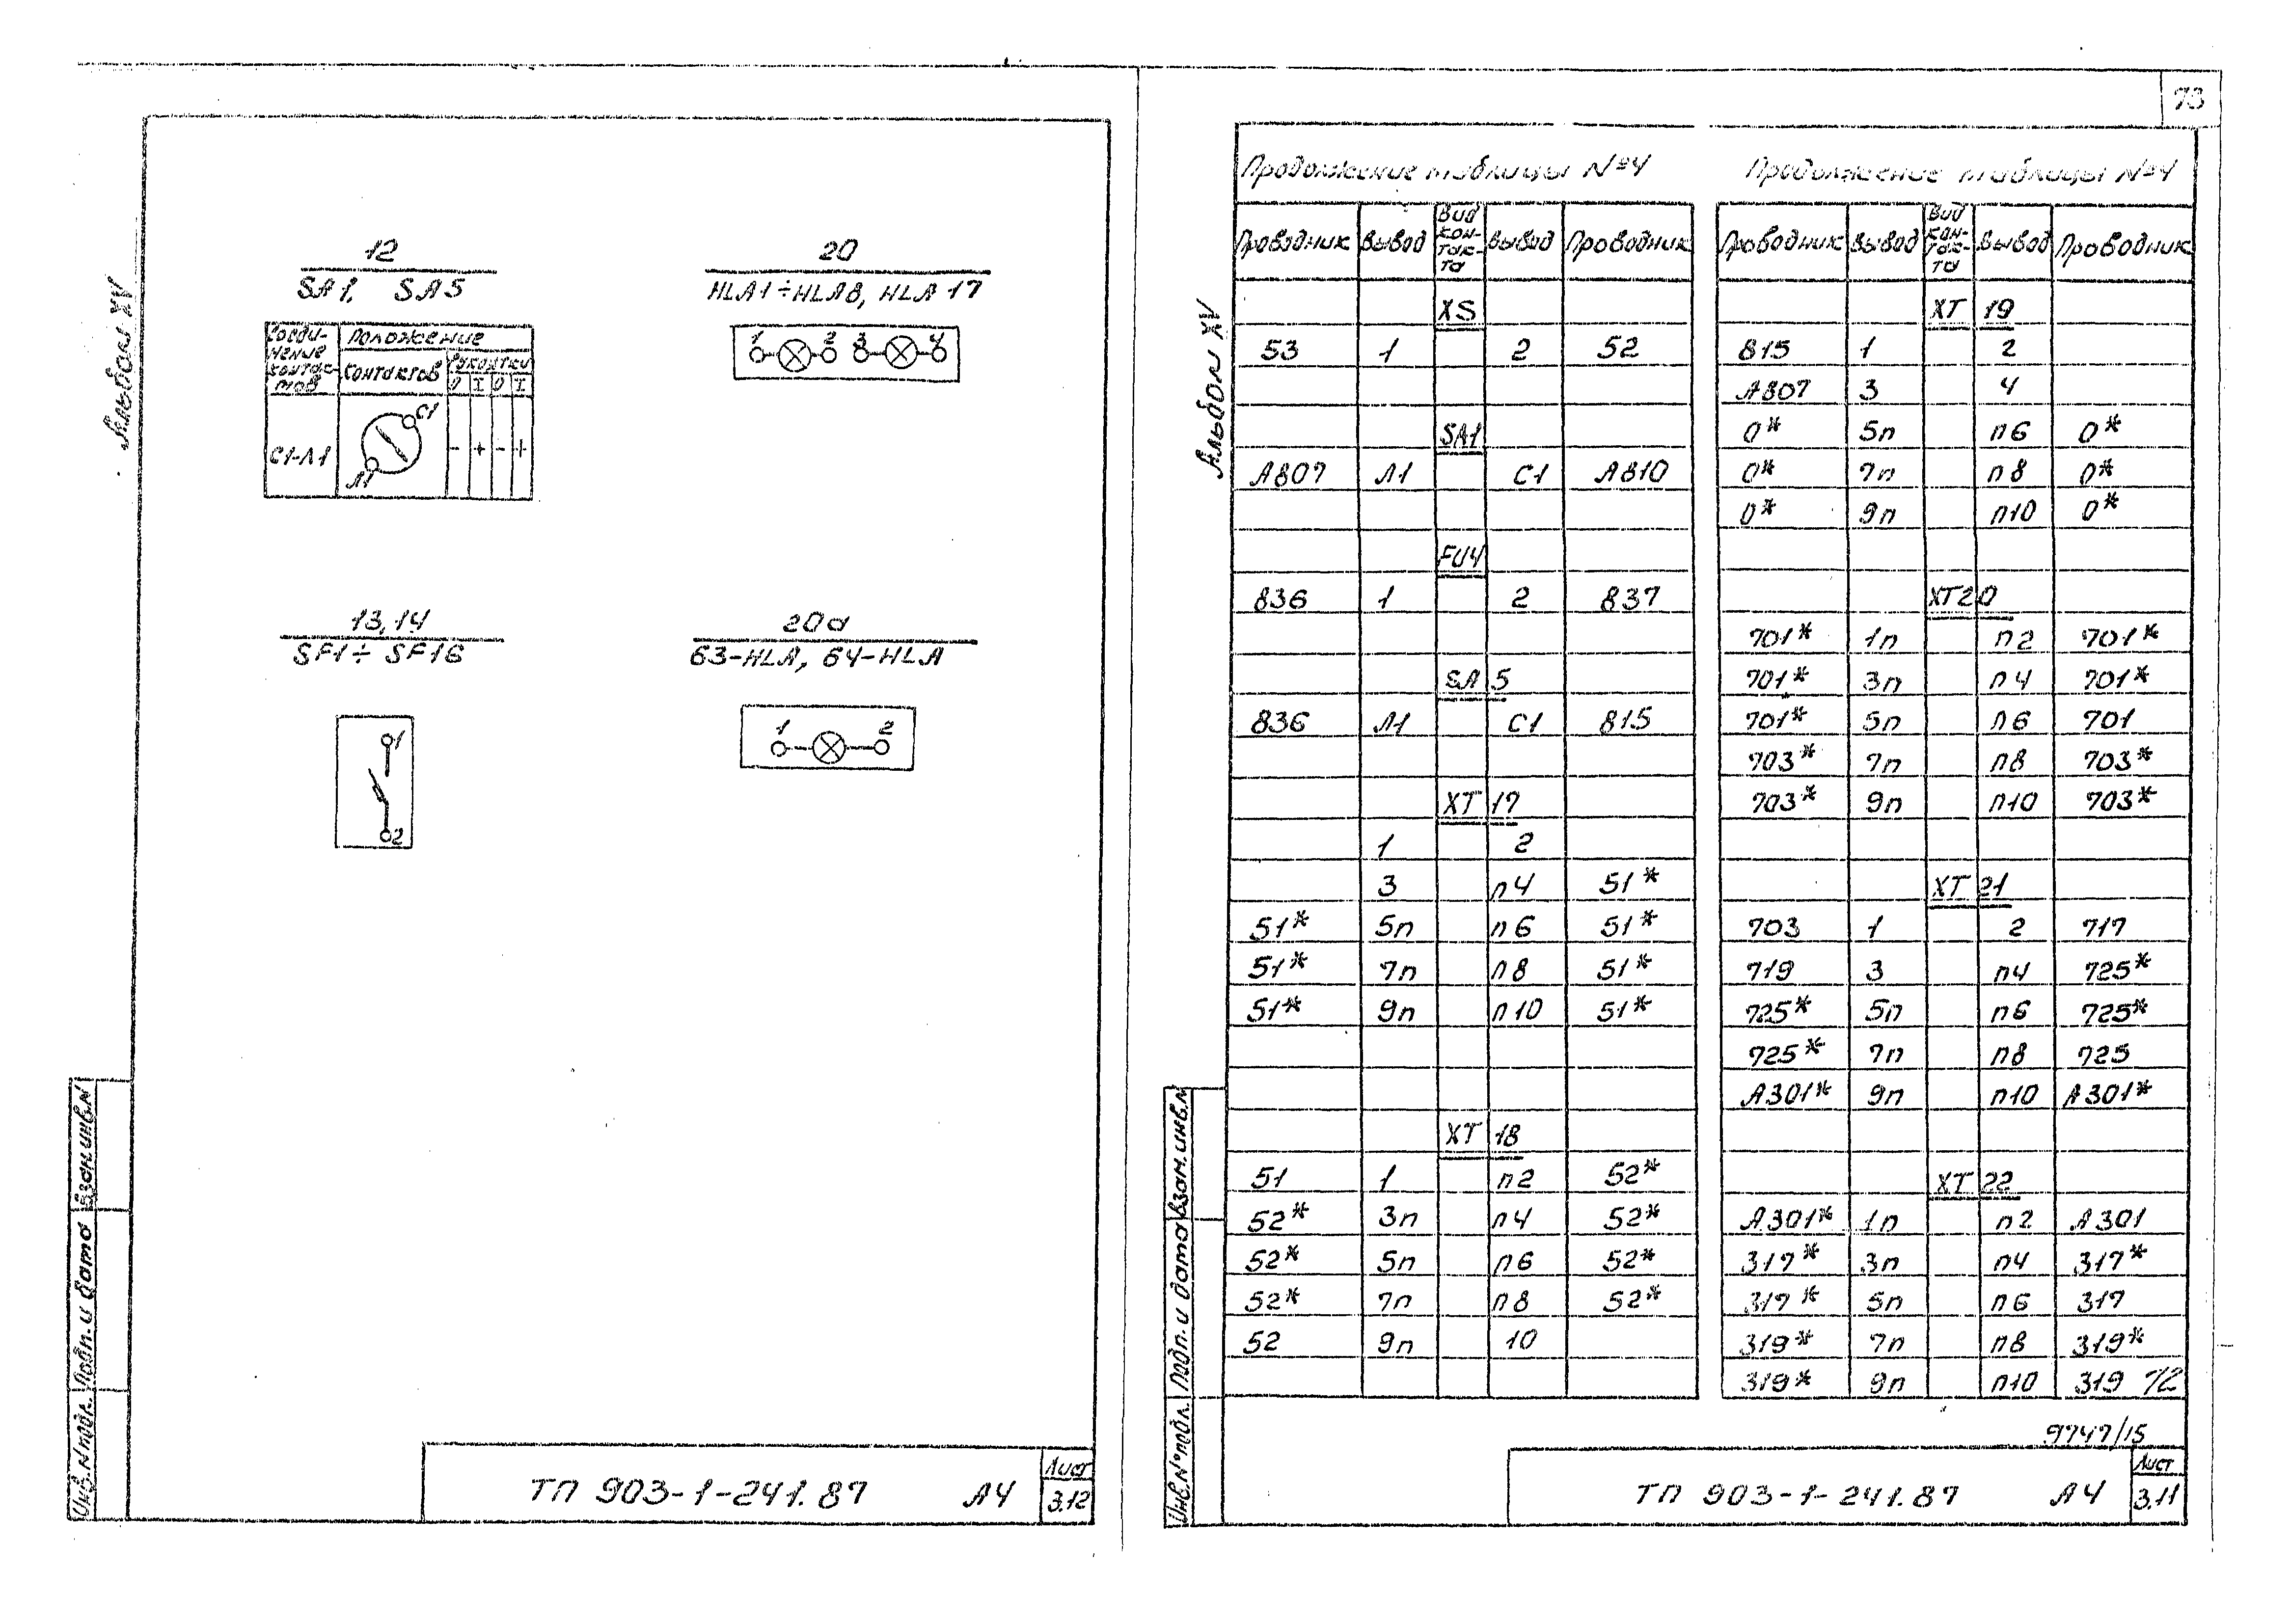 73
Альбом XV
12
SA1, SA5
Соеди-
нение
контак-
тов
Положение
контактов
рукоятки
0 I 0 I
С1-Л1
С1
Л1
- + - +
20
HLA1÷HLA8, HLA17
1 2 3 4
13,14
SF1÷ SF16
1
2
20а
63-HLA, 64-HLA
1 2
Взам.инв.№
Подп. и дата
Инв.№подл.
ТП 903-1-241.87 А4
Лист
3.12
Альбом XV
Продолжение таблицы №4
Проводник Вывод Вид кон-так-та Вывод Проводник
XS
53 1 2 52
SA1
А807 Л1 С1 А810
FU4
836 1 2 837
SA5
836 Л1 С1 815
XT 17
1 2
3 п4 51*
51* 5п п6 51*
51* 7п п8 51*
51* 9п п10 51*
XT 18
51 1 п2 52*
52* 3п п4 52*
52* 5п п6 52*
52* 7п п8 52*
52 9п 10
Продолжение таблицы №4
Проводник Вывод Вид кон-так-та Вывод Проводник
XT 19
815 1 2
А807 3 4
0* 5п п6 0*
0* 7п п8 0*
0* 9п п10 0*
XT20
701* 1п п2 701*
701* 3п п4 701*
701* 5п п6 701
703* 7п п8 703*
703* 9п п10 703*
XT 21
703 1 2 717
719 3 п4 725*
725* 5п п6 725*
725* 7п п8 725
А301* 9п п10 А301*
XT 22
А301* 1п п2 А301
317* 3п п4 317*
317* 5п п6 317
319* 7п п8 319*
319* 9п п10 319 72
9747/15
Взам.инв.№
Подп. и дата
Инв.№подл.
ТП 903-1-241.87 А4
Лист
3.11